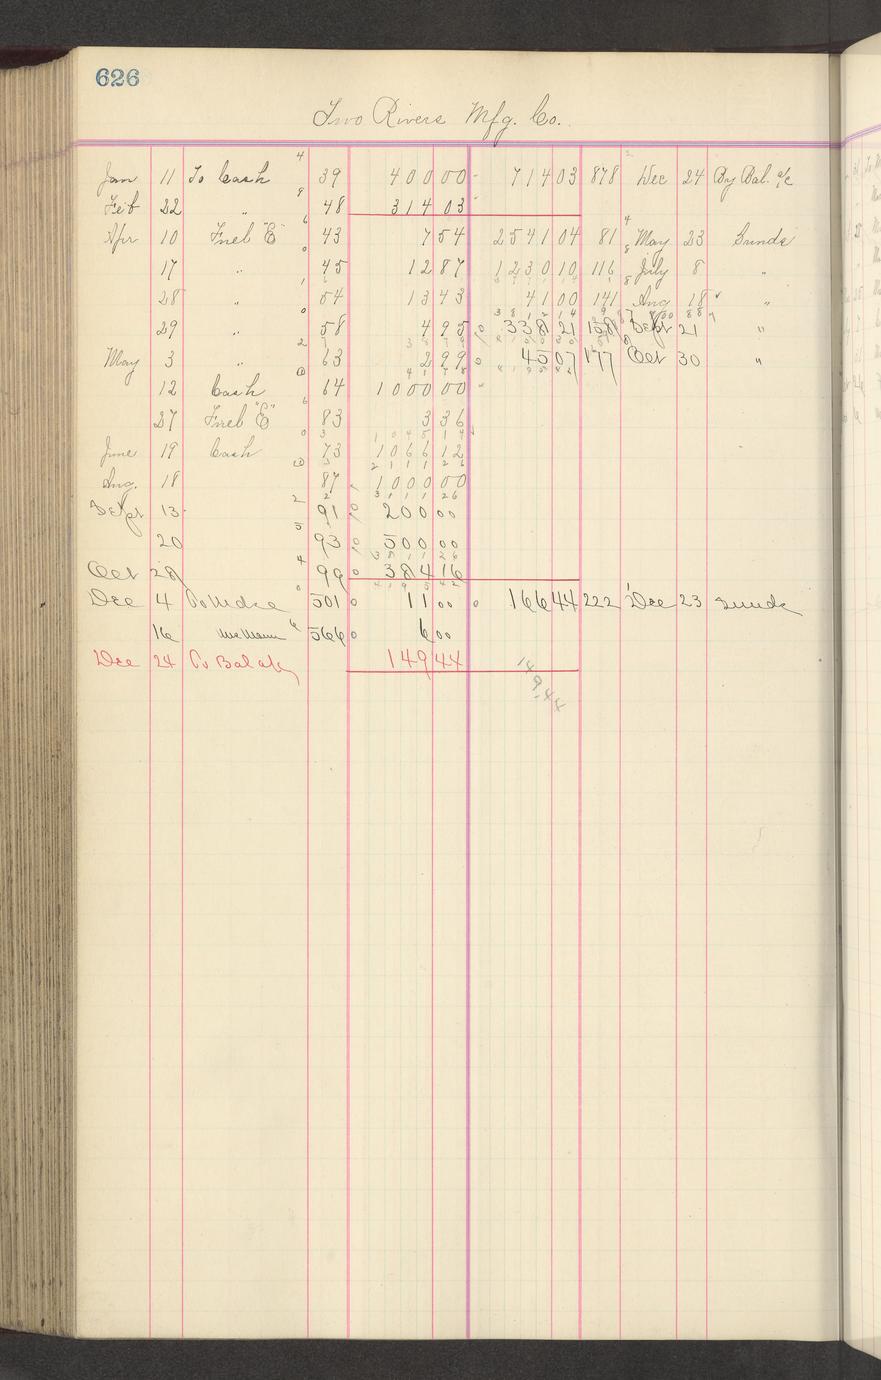 626
Two Rivers Mfg. Co.
Jan 11 To Cash 39 400 00 714 03 878 Dec 24 By Bal. a/c
Feb 22 " 48 314 03
Apr 10 Freb "E" 43 7 54 2541 04 81 May 23 Sunds
17 " 45 12 87 1230 10 116 July 8 "
28 " 54 13 43 41 00 141 Aug 18 "
29 " 58 4 95 338 21 158 Sept 21 "
May 3 " 63 2 99 45 07 177 Oct 30 "
12 Cash 64 1000 00
27 Freb "E" 83 3 36
June 19 Cash 73 1066 12
Aug. 18 87 1000 00
Sept 13 91 200 00
20 93 500 00
Oct 28 99 384 16
Dec 4 To Mdse 501 11 00 166 44 222 Dec 23 Sunds
16 566 6 00
Dec 24 To Bal a/c 149 44
149.44